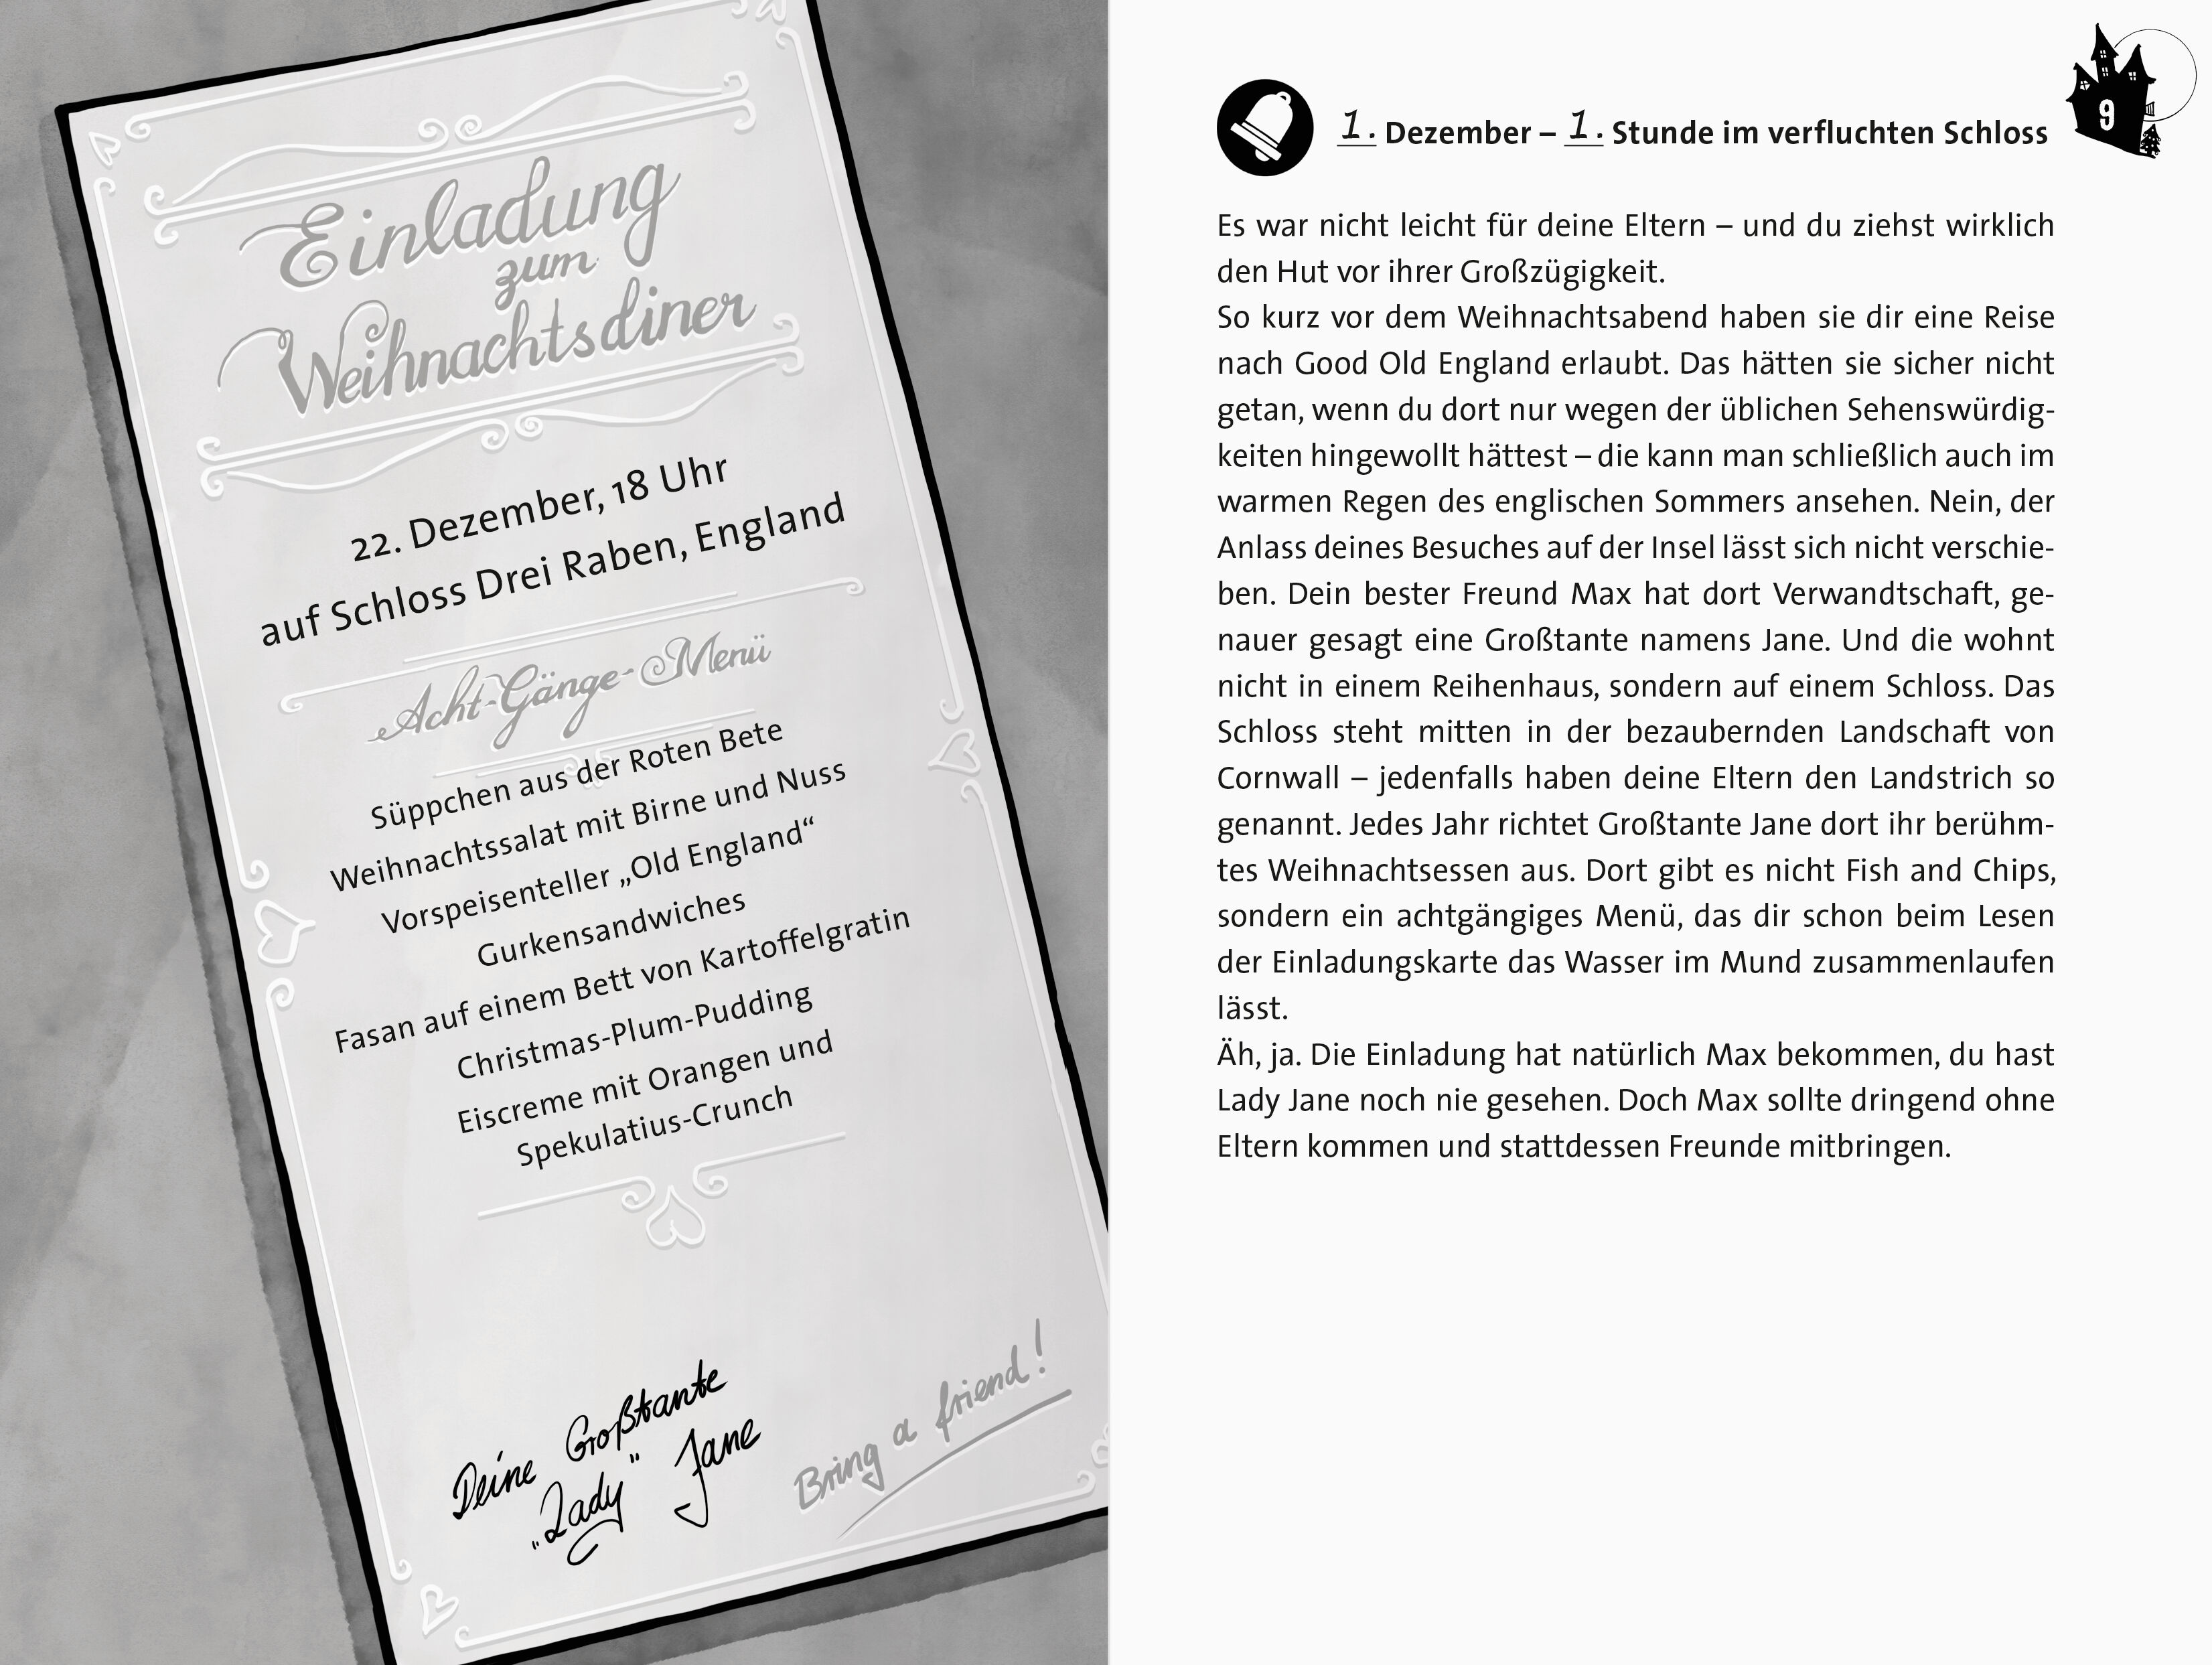 Einladung
zum
Weihnachtsdiner
22. Dezember, 18 Uhr
auf Schloss Drei Raben, England
Acht-Gänge-Menü
Süppchen aus der Roten Bete
Weihnachtssalat mit Birne und Nuss
Vorspeisenteller „Old England“
Gurkensandwiches
Fasan auf einem Bett von Kartoffelgratin
Christmas-Plum-Pudding
Eiscreme mit Orangen und
Spekulatius-Crunch
Deine Großtante
"Lady" Jane
Bring a friend!
1. Dezember – 1. Stunde im verfluchten Schloss
9
Es war nicht leicht für deine Eltern – und du ziehst wirklich
den Hut vor ihrer Großzügigkeit.
So kurz vor dem Weihnachtsabend haben sie dir eine Reise
nach Good Old England erlaubt. Das hätten sie sicher nicht
getan, wenn du dort nur wegen der üblichen Sehenswürdig-
keiten hingewollt hättest – die kann man schließlich auch im
warmen Regen des englischen Sommers ansehen. Nein, der
Anlass deines Besuches auf der Insel lässt sich nicht verschie-
ben. Dein bester Freund Max hat dort Verwandtschaft, ge-
nauer gesagt eine Großtante namens Jane. Und die wohnt
nicht in einem Reihenhaus, sondern auf einem Schloss. Das
Schloss steht mitten in der bezaubernden Landschaft von
Cornwall – jedenfalls haben deine Eltern den Landstrich so
genannt. Jedes Jahr richtet Großtante Jane dort ihr berühm-
tes Weihnachtsessen aus. Dort gibt es nicht Fish and Chips,
sondern ein achtgängiges Menü, das dir schon beim Lesen
der Einladungskarte das Wasser im Mund zusammenlaufen
lässt.
Äh, ja. Die Einladung hat natürlich Max bekommen, du hast
Lady Jane noch nie gesehen. Doch Max sollte dringend ohne
Eltern kommen und stattdessen Freunde mitbringen.